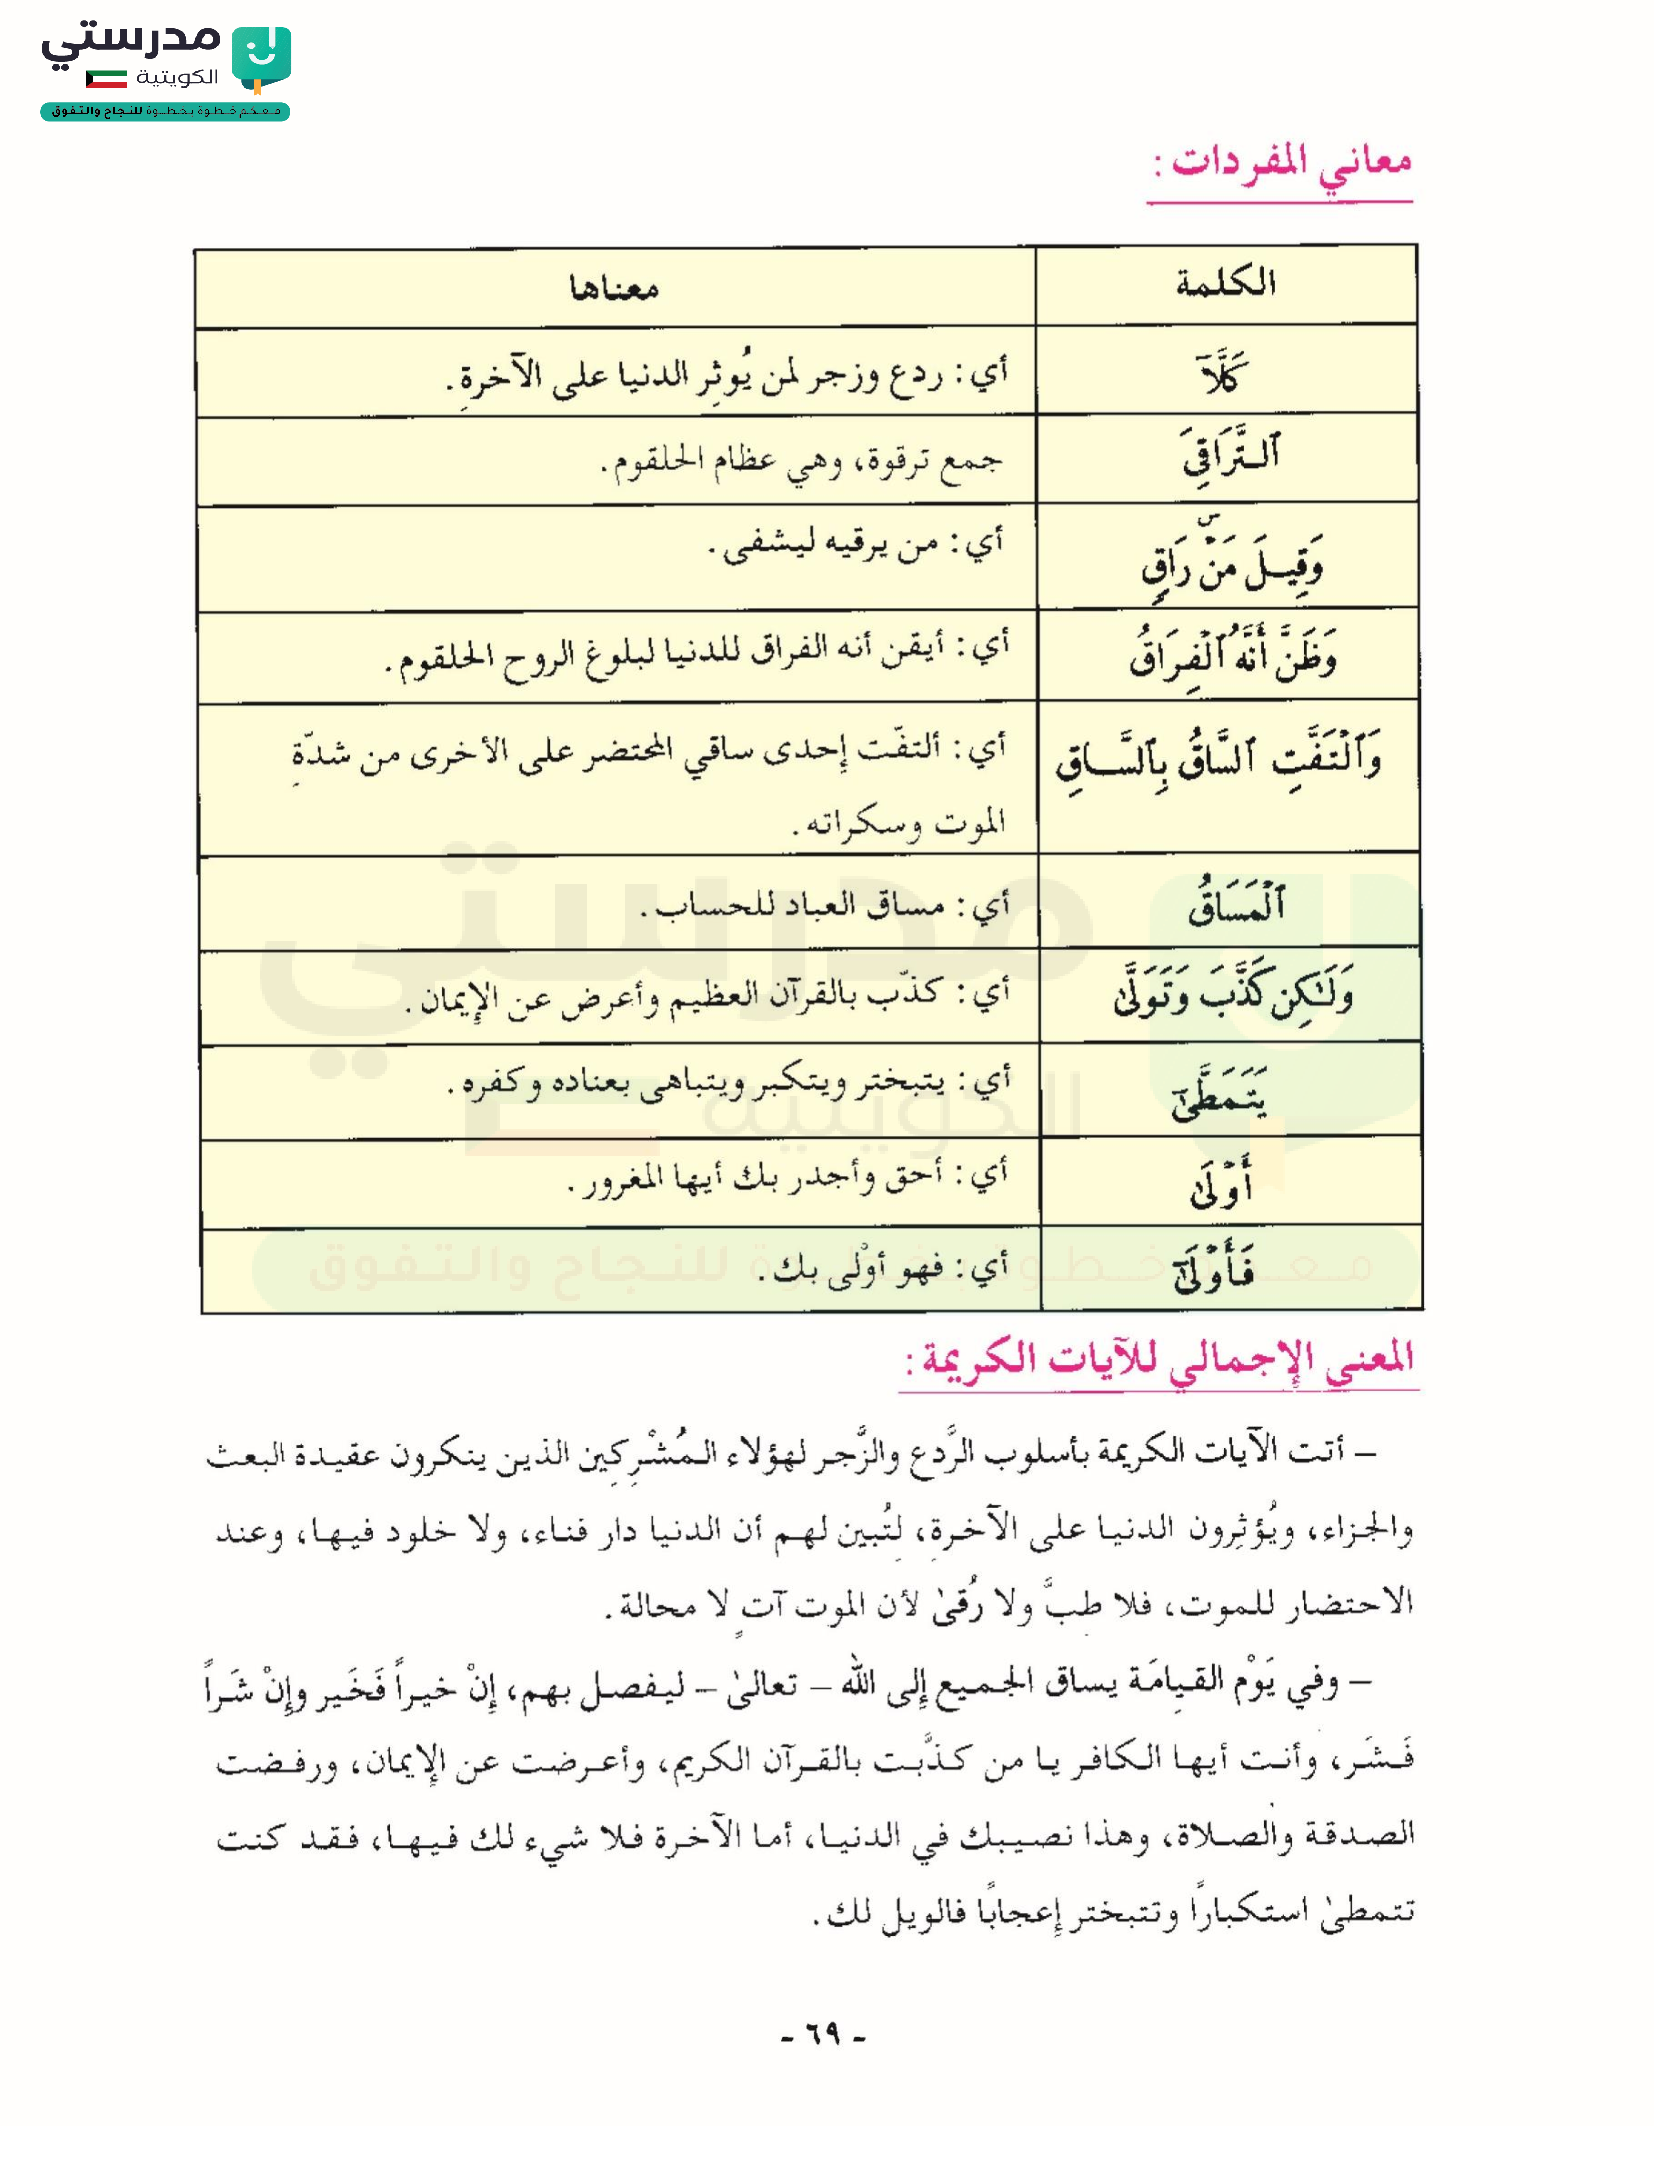 مدرستي
الكويتية
معكم خطوة بخطوة للنجاح والتفوق
معاني المفردات :
الكلمة
معناها
كَلَّآ
أي: ردع وزجر لمن يُوثِر الدنيا على الآخرةِ.
ٱلتَّرَاقِىَ
جمع ترقوة، وهي عظام الحلقوم.
وَقِيلَ مَنۡۜ رَاقٖ
أي: من يرقيه ليشفى.
وَظَنَّ أَنَّهُ ٱلۡفِرَاقُ
أي: أيقن أنه الفراق للدنيا لبلوغ الروح الحلقوم.
وَٱلۡتَفَّتِ ٱلسَّاقُ بِٱلسَّاقِ
أي: ألتفّت إحدى ساقي المحتضر على الأخرى من شدّةِ
الموت وسكراته.
ٱلۡمَسَاقُ
أي: مساق العباد للحساب.
وَلَٰكِن كَذَّبَ وَتَوَلَّىٰ
أي: كذّب بالقرآن العظيم وأعرض عن الإيمان.
يَتَمَطَّىٰٓ
أي: يتبختر ويتكبر ويتباهى بعناده وكفره.
أَوۡلَىٰ
أي: أحق وأجدر بك أيها المغرور.
فَأَوۡلَىٰٓ
أي: فهو أوْلى بك.
المعنى الإجمالي للآيات الكريمة:
– أتت الآيات الكريمة بأسلوب الرَّدع والزَّجر لهؤلاء المُشْرِكِين الذين ينكرون عقيدة البعث
والجزاء، ويُؤثِرون الدنيا على الآخرةِ، لِتُبين لهم أن الدنيا دار فناء، ولا خلود فيها، وعند
الاحتضار للموت، فلا طبَّ ولا رُقىٰ لأن الموت آتٍ لا محالة.
– وفي يَوْم القِيامَة يساق الجميع إلى الله – تعالىٰ – ليفصل بهم، إنْ خيراً فَخَير وإنْ شَراً
فَشَر، وأنت أيها الكافر يا من كذَّبت بالقرآن الكريم، وأعرضت عن الإيمان، ورفضت
الصدقة والصلاة، وهذا نصيبك في الدنيا، أما الآخرة فلا شيء لك فيها، فقد كنت
تتمطىٰ استكبارًا وتتبختر إعجابًا فالويل لك.
- ٦٩ -